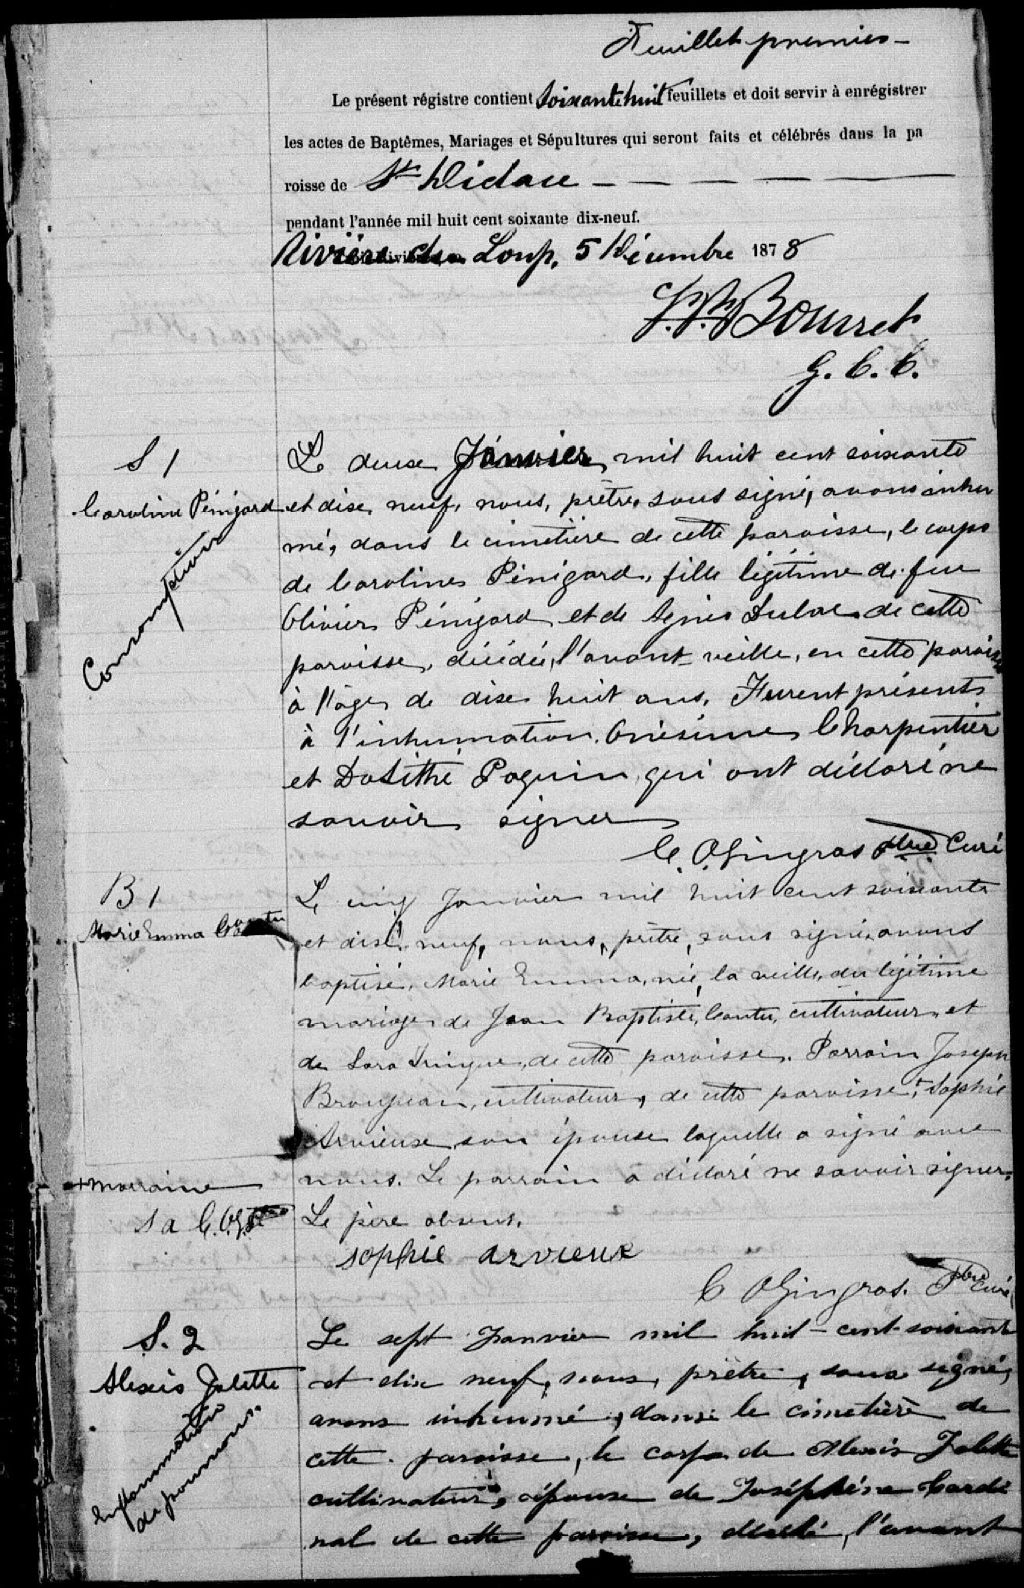 Feuillet premier -
Le présent régistre contient soixante huit feuillets et doit servir à enrégistrer
les actes de Baptêmes, Mariages et Sépultures qui seront faits et célébrés dans la pa
roisse de St Didace — — — — —
pendant l'année mil huit cent soixante dix-neuf.
Rivière du Loup, 5 Décembre 1878
Bourret
G. C. C.
S 1
Caroline Pénigard
Consomption
Le deuse Janvier, mil huit cent soixante
et dise neuf, nous, prêtre, sous signé, avons inhu
mé, dans le cimetière de cette paroisse, le corps
de Caroline Pénigard, fille légitime de feu
Olivier Pénigard et de Agnès Dulac de cette
paroisse, décédée, l'avant veille, en cette paroisse
à l'âge de dise huit ans. Furent présents
à l'inhumation Onésime Charpentier
et Dosithé Paquin qui ont déclaré ne
savoir signer
C. O. Gingras Ptre Curé
B 1
Marie Emma Cantu
Le cinq Janvier mil huit cent soixante
et dise neuf, nous, prêtre, sous signé avons
baptisé, Marie Emma, née, la veille, du légitime
mariage de Jean Baptiste Cantu, cultivateur et
de Sara de cette paroisse. Parrain Joseph
cultivateur, de cette paroisse, + Sophie
Arvieuse son épouse laquelle a signé avec
nous. Le parrain a déclaré ne savoir signer.
Le père absent.
+ marraine
S a C. O. G. Ptre
sophie arvieux
C O Gingras. Ptre Curé
S. 2
Alexis Jolette
Inflammation
de poumons.
Le sept Janvier mil huit-cent soixante
et dix neuf, nous, prêtre, sous signé,
avons inhumé, dans le cimetière de
cette paroisse, le corps de Alexis Jolette
cultivateur, épouse de Joséphine Cardi
nal de cette paroisse, décédé, l'avant